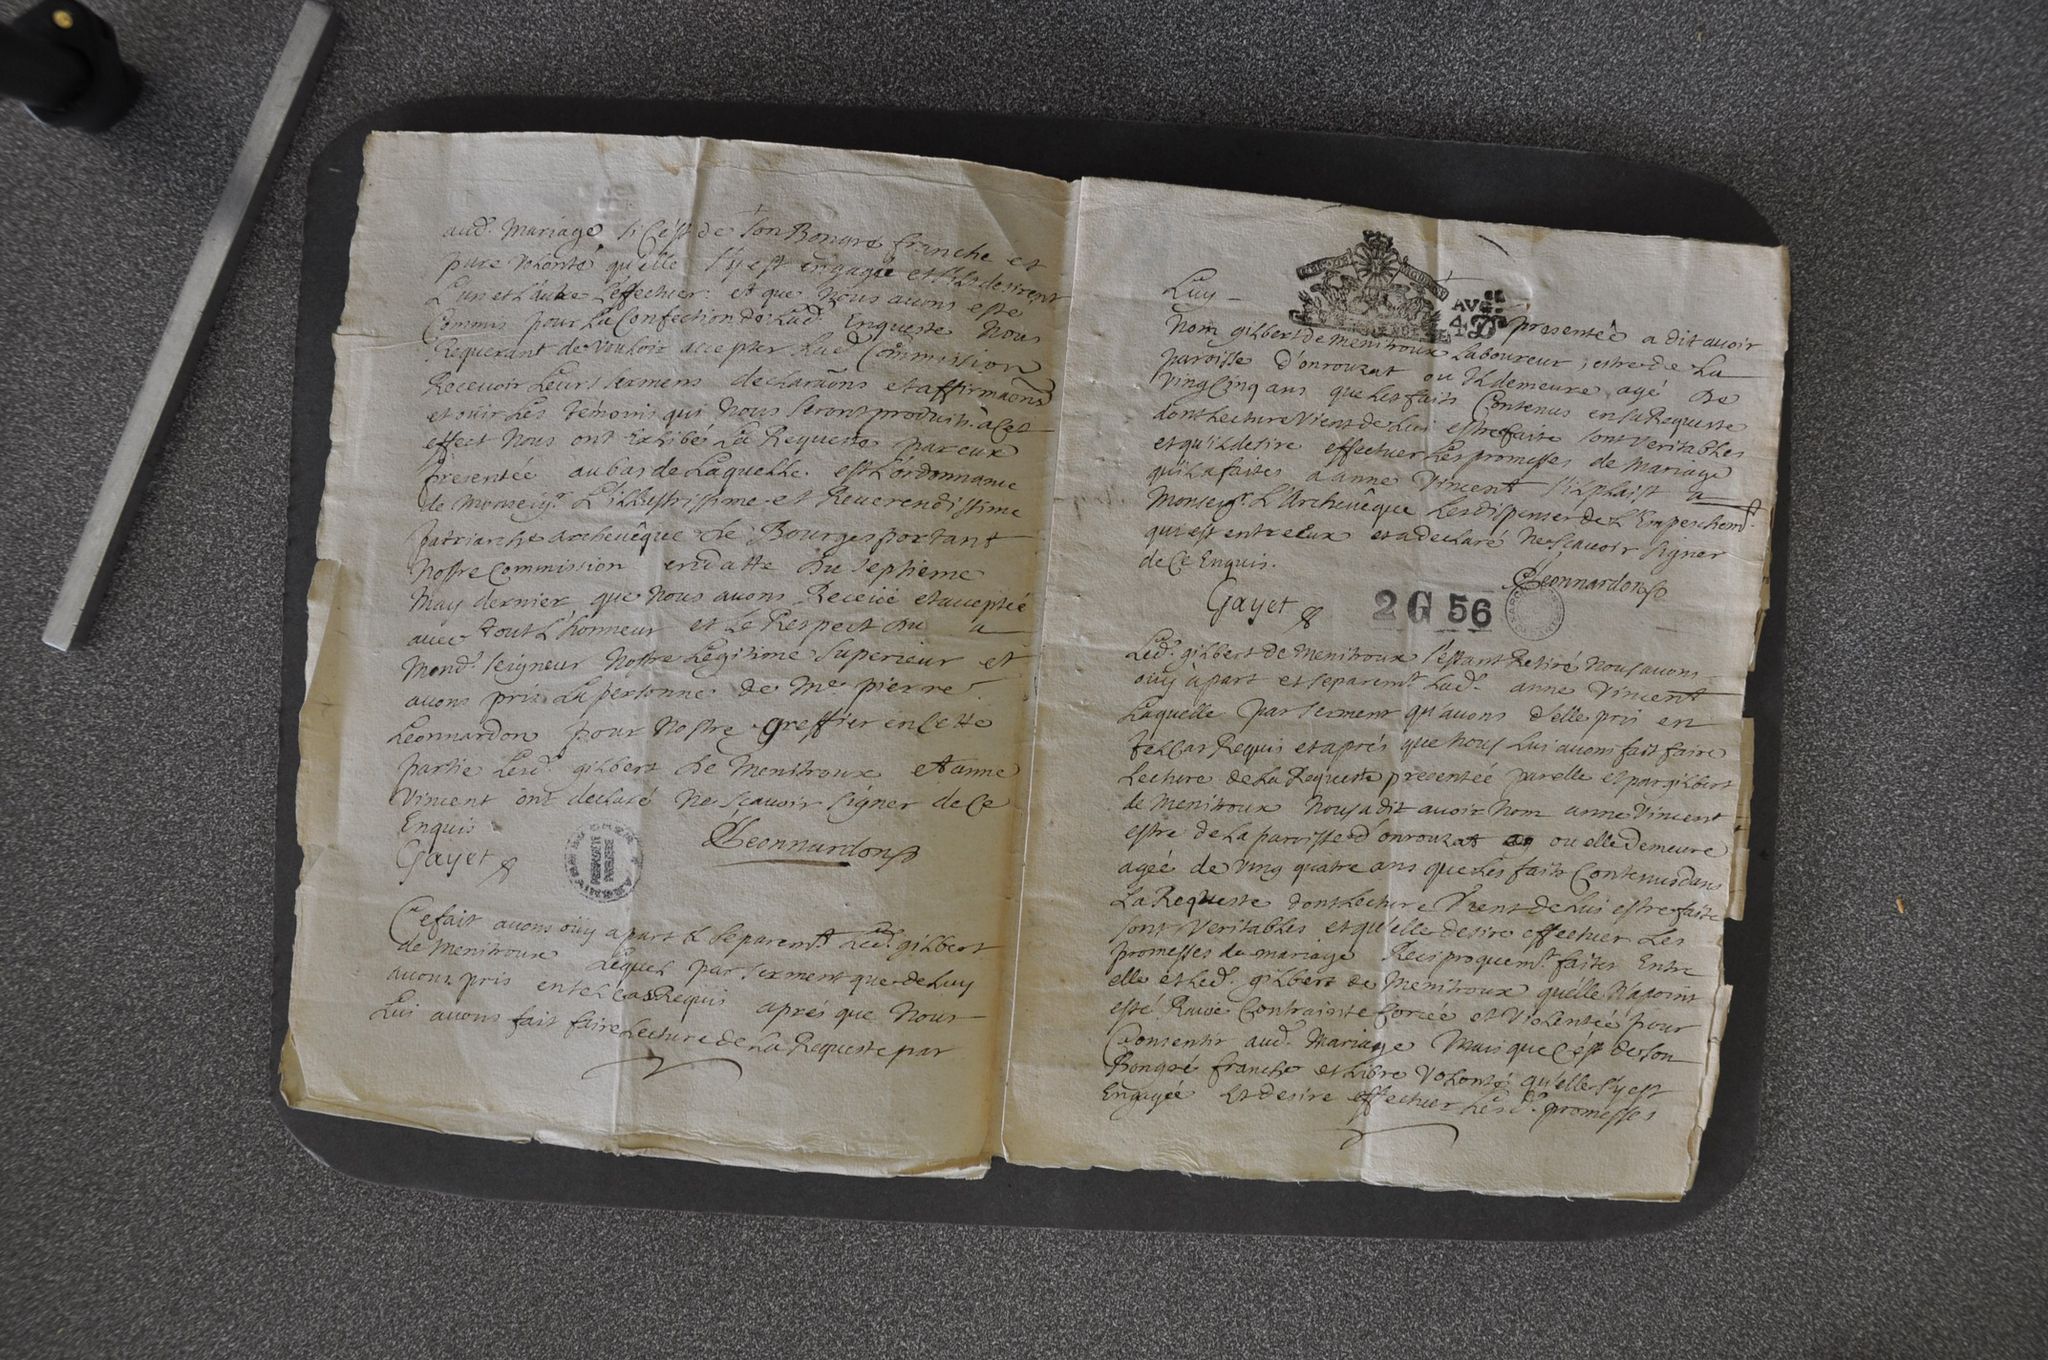 aud. Mariage si C'est de son Bongré franche et
pure volonté qu'elle s'y est engagée et s'ils desirent
L'un et L'autre L'effectuer. et que Nous avons esté
Commis pour La Confection de Lad. Enqueste Nous
Requerant de vouloir accepter Lad. Commission
Recevoir Leurs sermens declaraons et affirmaons
et ouir Les témoins qui Nous seront produits à Cet
effect Nous ont Exhibé La Requeste par eux
presentée au bas de Laquelle est L'ordonnance
de Monseigr. L'illustrissime et Reverendissime
patriarche archevêque de Bourges portant
Nostre Commission en datte du septieme
May dernier que Nous avons Receüe et acceptée
avec tout L'honneur et Le Respect dû a
Mond. seigneur Nostre Legitime superieur et
avons pris La personne de Me pierre
Leonnardon pour Nostre greffier en Cette
partie Lesd. gilbert de Menitroux et anne
Vincent ont declaré Ne sçavoir signer de Ce
Enquis
Gayet Leonnardon
Ce fait avons oüy apart & separemt. Led. gilbert
de Menitroux Lequel par serment que de Luy
avons pris en tel cas Requis aprés que Nous
Lui avons fait faire Lecture de La Requeste par
Luy
AVG
4 D
presentée a dit avoir
Nom gilbert de Menitroux Laboureur, estre de La
paroisse d'onrouzat ou Il demeure agé de
Vingt Cinq ans que Les faits Contenus en sa Requeste
dont Lecture Vient de Lui estre faite sont veritables
et qu'il desire effectuer Les promesses de Mariage
qu'il a faites a anne Vincent s'il plaist a
Monseigr. L'Archevêque Les dispenser de L'Empeschemt.
qui est entre eux et a declaré Ne sçavoir signer
de Ce Enquis.
Leonnardon
Gayet
2 G 56
Led. gilbert de Menitroux s'estant Retiré Nous avons
oüy à part et separemt. Lad. anne Vincent
Laquelle par serment qu'avons d'elle pris en
tel Cas Requis et aprés que Nous Lui avons fait faire
Lecture de La Requeste presentée par elle et par gilbert
de Menitroux Nous a dit avoir Nom anne Vincent
estre de La paroisse d'onrouzat ou elle demeure
agée de Ving quatre ans que Les faits Contenus dans
La Requeste dont Lecture Vient de Lui estre faite
sont Veritables et qu'elle desire effectuer Les
promesses de mariage Reciproquemt. faites Entre
elle et Led. gilbert de Menitroux qu'elle N'a point
esté Ravie Contrainte forcée et Violentée pour
Consentir aud. Mariage Mais que C'est de son
Bongré franche et Libre Volonté qu'elle s'y est
Engagée Et desire effectuer Lesd. promesses